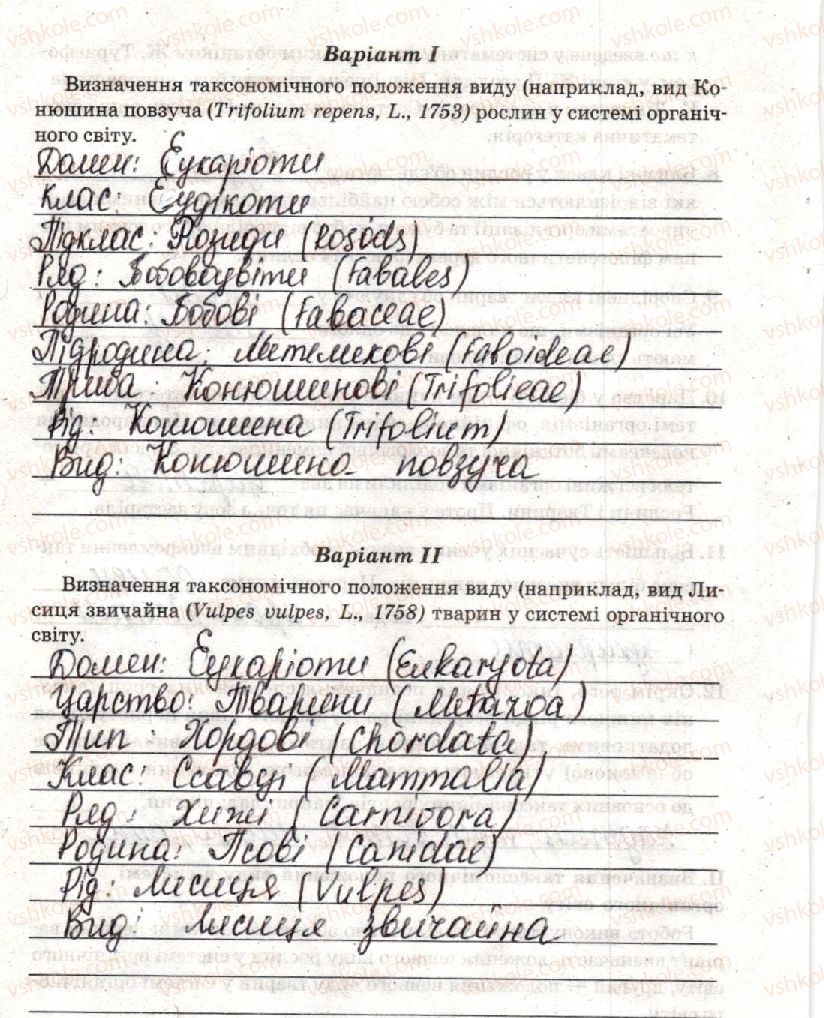 Варіант I
Визначення таксономічного положення виду (наприклад, вид Ко-
нюшина повзуча (Trifolium repens, L., 1753) рослин у системі органіч-
ного світу.
Домен: Еукаріоти
Клас: Еудікоти
Підклас: Розиди (Rosids)
Ряд: Бобовоцвіти (Fabales)
Родина: Бобові (Fabaceae)
Підродина: Метеликові (Faboideae)
Триба: Конюшинові (Trifolieae)
Рід: Конюшина (Trifolium)
Вид: Конюшина повзуча
Варіант II
Визначення таксономічного положення виду (наприклад, вид Ли-
сиця звичайна (Vulpes vulpes, L., 1758) тварин у системі органічного
світу.
Домен: Еукаріоти (Eukaryota)
Царство: Тварини (Metazoa)
Тип: Хордові (Chordata)
Клас: Ссавці (Mammalia)
Ряд: Хижі (Carnivora)
Родина: Псові (Canidae)
Рід: Лисиця (Vulpes)
Вид: Лисиця звичайна